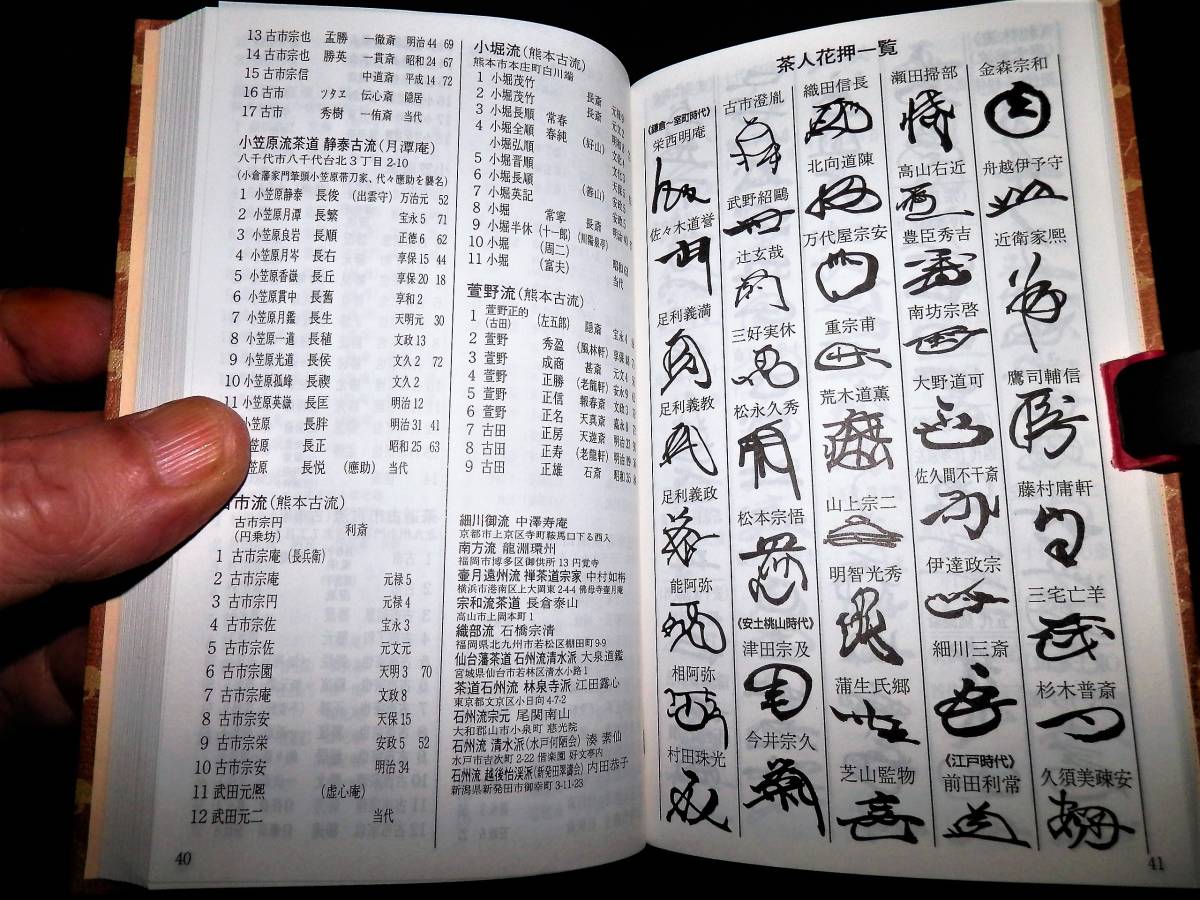 13 古市宗也 孟勝 一徹斎 明治44 69
14 古市宗也 勝英 一貫斎 昭和24 67
15 古市宗信 中道斎 平成14 72
16 古市 ツタヱ 伝心斎 隠居
17 古市 秀樹 一侑斎 当代
小笠原流茶道 静泰古流(月潭庵)
八千代市八千代台北3丁目2-10
(小倉藩家門筆頭小笠原帯刀家、代々應助を襲名)
1 小笠原静泰 長俊 (出雲守) 万治元 52
2 小笠原月潭 長繁 宝永5 71
3 小笠原良岩 長順 正徳6 62
4 小笠原月岑 長右 享保15 44
5 小笠原香嶽 長丘 享保20 18
6 小笠原貫中 長舊 享和2
7 小笠原月鑑 長生 天明元 30
8 小笠原一道 長稙 文政13
9 小笠原光道 長侯 文久2 72
10 小笠原孤峰 長禊 文久2
11 小笠原英嶽 長匡 明治12
笠原 長胖 明治31 41
原 長正 昭和25 63
原 長悦 (應助) 当代
市流(熊本古流)
古市宗円 利斎
(円乗坊)
1 古市宗庵(長兵衛)
2 古市宗庵 元禄5
3 古市宗円 元禄4
4 古市宗佐 宝永3
5 古市宗佐 元文元
6 古市宗園 天明3 70
7 古市宗庵 文政8
8 古市宗安 天保15
9 古市宗栄 安政5 52
10 古市宗安 明治34
11 武田元熈 (虚心庵)
12 武田元二 当代
40
小堀流(熊本古流)
熊本市本庄町白川端
1 小堀茂竹
2 小堀茂竹 長斎
3 小堀長順 常春 長斎
4 小堀全順 春純 (好山)
小堀弘順
5 小堀晋順
6 小堀長順
7 小堀英記 (善山)
8 小堀 常寧 長斎
9 小堀半休 (十一郎) (川陽泉亭)
10 小堀 (周二)
11 小堀 (富夫) 当代
萱野流(熊本古流)
1 萱野正的 (左五郎) 隠斎 宝永4
(古田)
2 萱野 秀盈 (風林軒)
3 萱野 成商 甚斎 元文4
4 萱野 正勝 (老龍軒) 安永9
5 萱野 正信 報春斎 文政3
6 萱野 正名 天真斎
7 古田 正房 天遊斎
8 古田 正寿 (老龍軒)
9 古田 正雄 石斎
細川御流 中澤寿庵
京都市上京区寺町鞍馬口下る西入
南方流 龍淵環州
福岡市博多区御供所13 円覚寺
壷月遠州流 禅茶道宗家 中村如栴
横浜市港南区上大岡東2-4-4 佛母寺壷月庵
宗和流茶道 長倉泰山
高山市上岡本町1
織部流 石橋宗清
福岡県北九州市若松区棚田町9-9
仙台藩茶道 石州流清水派 大泉道鑑
宮城県仙台市若林区清水小路1
茶道石州流 林泉寺派 江田露心
東京都文京区小日向4-7-2
石州流宗元 尾関南山
大和郡山市小泉町 慈光院
石州流 清水派(水戸何陋会) 湊 素仙
水戸市吉次町2-22 偕楽園 好文亭内
石州流 越後怡渓派(新発田翠濤会) 内田恭子
新潟県新発田市御幸町3-11-23
茶人花押一覧
《鎌倉~室町時代》
栄西明庵
佐々木道誉
足利義満
足利義教
足利義政
能阿弥
相阿弥
村田珠光
古市澄胤
武野紹鷗
辻玄哉
三好実休
松永久秀
松本宗悟
《安土桃山時代》
津田宗及
今井宗久
織田信長
北向道陳
万代屋宗安
重宗甫
荒木道薫
山上宗二
明智光秀
蒲生氏郷
芝山監物
瀬田掃部
高山右近
豊臣秀吉
南坊宗啓
大野道可
佐久間不干斎
伊達政宗
細川三斎
《江戸時代》
前田利常
金森宗和
舟越伊予守
近衛家熈
鷹司輔信
藤村庸軒
三宅亡羊
杉木普斎
久須美疎安
41